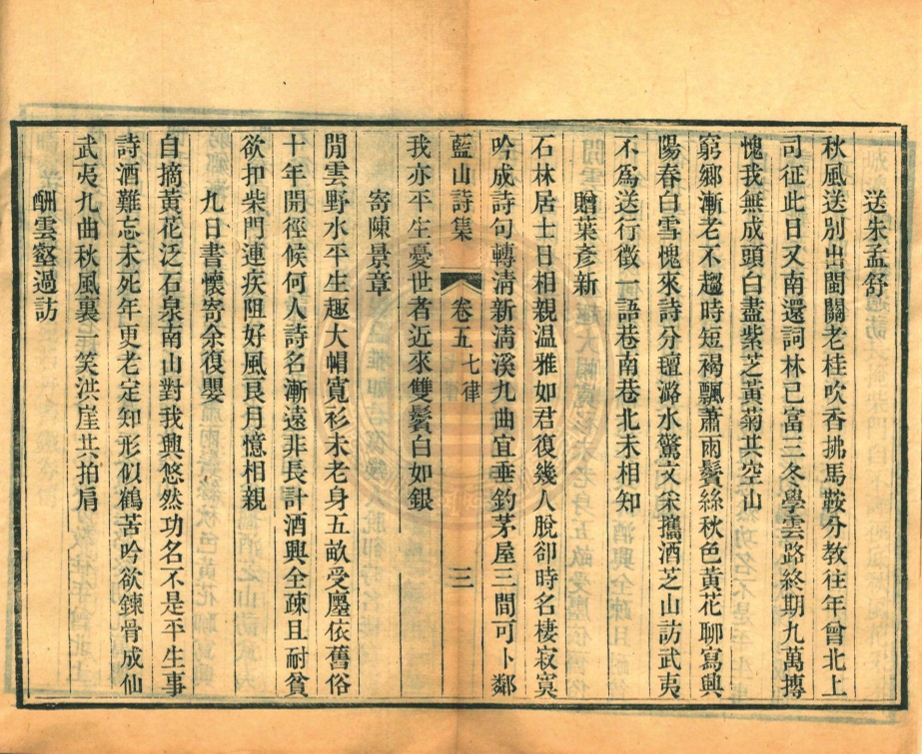 送朱孟舒
秋風送別出閩關老桂吹香拂馬鞍分敎往年曾北上
司征此日又南還詞林已富三冬學雲路終期九萬摶
愧我無成頭白盡紫芝黃菊共空山
窮鄉漸老不趨時短褐飄蕭雨鬢絲秋色黃花聊寫興
陽春白雪愧來詩分璮潞水驚文宋攜酒芝山訪武夷
不爲送行徵一語巷南巷北未相知
贈葉彥新
石林居士日相親溫雅如君復幾人脫卻時名棲寂寞
吟成詩句轉淸新淸溪九曲宜垂釣茅屋三間可卜鄰
藍山詩集
卷五
七律
三
我亦平生憂世者近來雙鬢白如銀
寄陳景章
閒雲野水平生趣大帽寬衫未老身五畝受廛依舊俗
十年開徑候何人詩名漸遠非長計酒興全疎且耐貧
欲扣柴門連疾阻好風良月憶相親
九日書懷寄余復嬰
自摘黃花泛石泉南山對我興悠然功名不是平生事
詩酒難忘未死年更老定知形似鶴苦吟欲鍊骨成仙
武夷九曲秋風裏一笑洪崖共拍肩
酬雲壑過訪